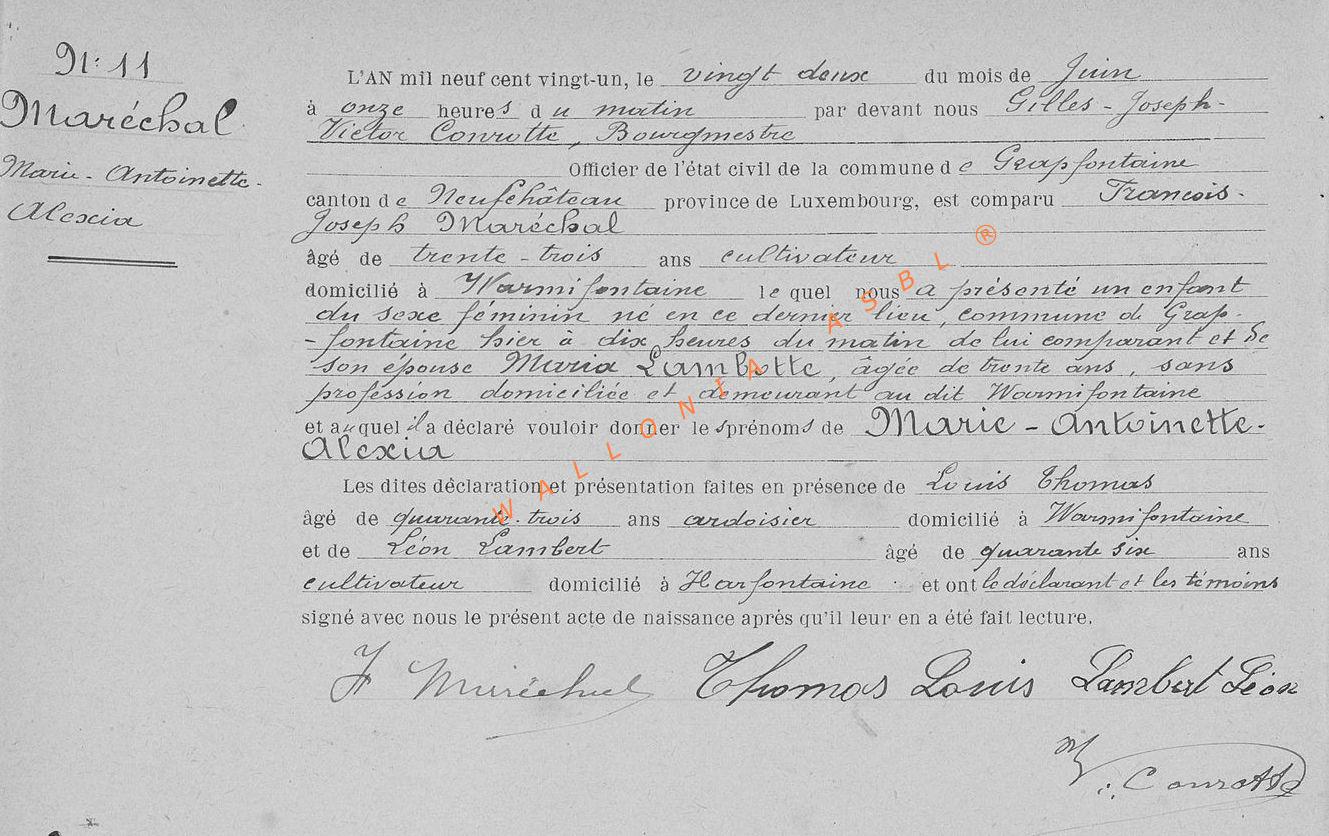 N: 11
Maréchal
Marie - Antoinette -
Alexia
L'AN mil neuf cent vingt-un, le vingt deux du mois de Juin
à onze heures du matin par devant nous Gilles - Joseph -
Victor Conrotte, Bourgmestre
Officier de l'état civil de la commune de Grapfontaine
canton de Neufchâteau province de Luxembourg, est comparu Francois -
Joseph Maréchal
âgé de trente - trois ans cultivateur
domicilié à Warmifontaine lequel nous a présenté un enfant
du sexe féminin né en ce dernier lieu, commune de Grap-
-fontaine hier à dix heures du matin de lui comparant et de
son épouse Maria Lambotte, âgée de trente ans, sans
profession domiciliée et demeurant au dit Warmifontaine
et auquel il a déclaré vouloir donner les prénoms de Marie - Antoinette -
Alexia
Les dites déclaration et présentation faites en présence de Louis Thomas
âgé de quarante-trois ans ardoisier domicilié à Warmifontaine
et de Léon Lambert âgé de quarante six ans
cultivateur domicilié à Harfontaine et ont le déclarant et les témoins
signé avec nous le présent acte de naissance après qu'il leur en a été fait lecture.
F Maréchal Thomas Louis Lambert Léon
V. Conrotte
WALLONIA ASBL ®